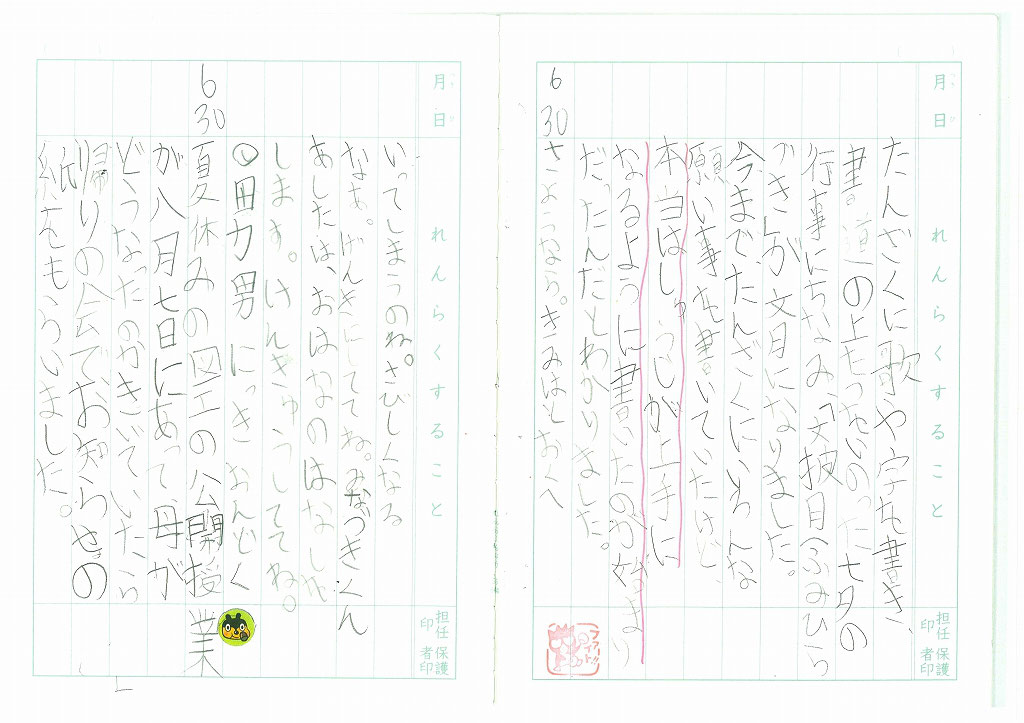 月日
れんらくすること
担任印
保護者印
たんざくに歌や字を書き、
書道の上たつをいのった七夕の
行事にちなみ「文披月(ふみひら
づき)」が文月になりました。
今まで、たんざくにいろんな
願い事を書いていたけど、
本当はしゅうじが上手に
なるように書いたのが始まり
だったんだとわかりました。
6
30
さようなら。きみはとおくへ
ファイト!!
月日
れんらくすること
担任印
保護者印
いってしまうのね。さびしくなる
なあ。げんきにしててね。みなづきくん
あしたは、おはなのはなしを
します。けんきゅうしててね。
男にっきおんどく
6
30
夏休みの図工の公開授業
が八月七日にあって母が
どうなったのかきいていたら
帰りの会でお知らせの
紙をもらいました。